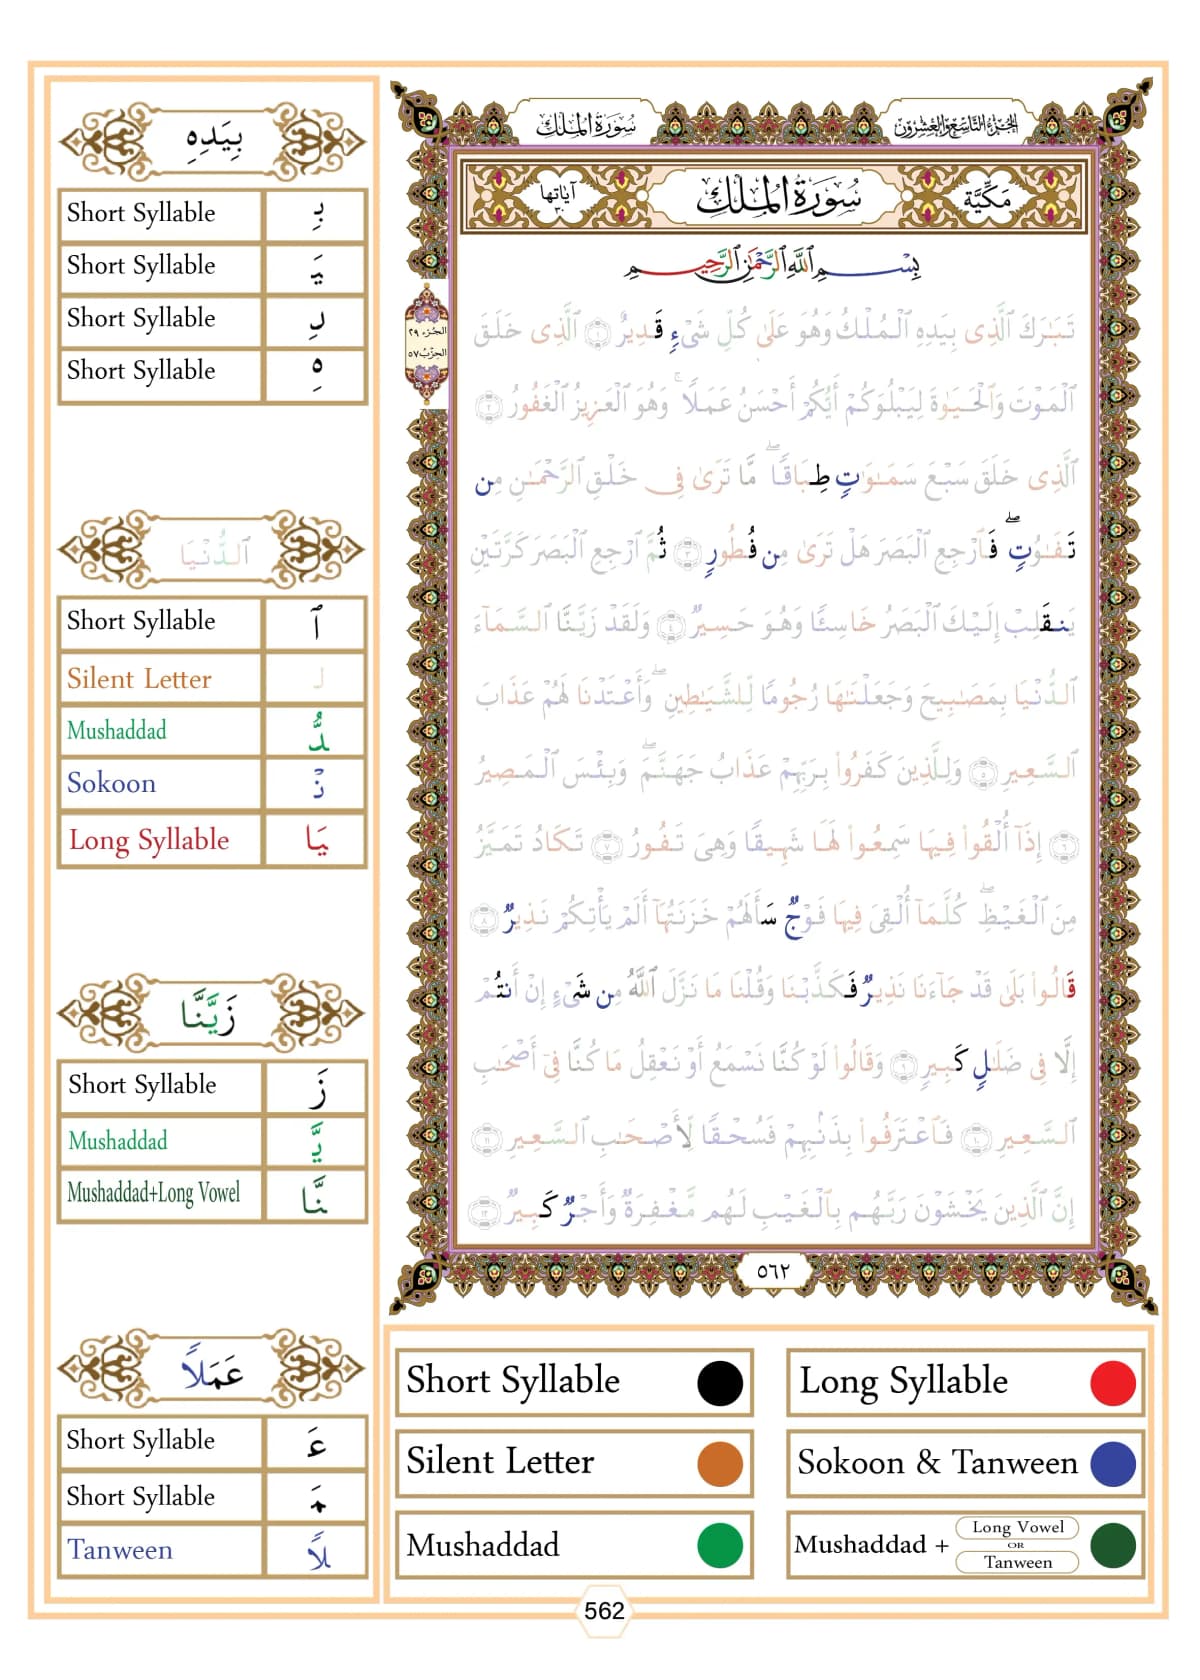 سُورَةُ الْمُلْكِ
الجُزْءُ التَّاسِعُ وَالعِشْرُونَ
مَكِّيَّة
سُورَةُ الْمُلْكِ
آيَاتُهَا ٣٠
بِسْمِ ٱللَّهِ ٱلرَّحْمَٰنِ ٱلرَّحِيمِ
الجُزء ٢٩
الحِزْبُ ٥٧
تَبَٰرَكَ ٱلَّذِى بِيَدِهِ ٱلْمُلْكُ وَهُوَ عَلَىٰ كُلِّ شَىْءٍ قَدِيرٌ ١ ٱلَّذِى خَلَقَ
ٱلْمَوْتَ وَٱلْحَيَوٰةَ لِيَبْلُوَكُمْ أَيُّكُمْ أَحْسَنُ عَمَلًا ۚ وَهُوَ ٱلْعَزِيزُ ٱلْغَفُورُ ٢
ٱلَّذِى خَلَقَ سَبْعَ سَمَٰوَٰتٍ طِبَاقًا ۖ مَّا تَرَىٰ فِى خَلْقِ ٱلرَّحْمَٰنِ مِن
تَفَٰوُتٍ ۖ فَٱرْجِعِ ٱلْبَصَرَ هَلْ تَرَىٰ مِن فُطُورٍ ٣ ثُمَّ ٱرْجِعِ ٱلْبَصَرَ كَرَّتَيْنِ
يَنقَلِبْ إِلَيْكَ ٱلْبَصَرُ خَاسِئًا وَهُوَ حَسِيرٌ ٤ وَلَقَدْ زَيَّنَّا ٱلسَّمَآءَ
ٱلدُّنْيَا بِمَصَٰبِيحَ وَجَعَلْنَٰهَا رُجُومًا لِّلشَّيَٰطِينِ ۖ وَأَعْتَدْنَا لَهُمْ عَذَابَ
ٱلسَّعِيرِ ٥ وَلِلَّذِينَ كَفَرُوا۟ بِرَبِّهِمْ عَذَابُ جَهَنَّمَ ۖ وَبِئْسَ ٱلْمَصِيرُ
٦ إِذَآ أُلْقُوا۟ فِيهَا سَمِعُوا۟ لَهَا شَهِيقًا وَهِىَ تَفُورُ ٧ تَكَادُ تَمَيَّزُ
مِنَ ٱلْغَيْظِ ۖ كُلَّمَآ أُلْقِىَ فِيهَا فَوْجٌ سَأَلَهُمْ خَزَنَتُهَآ أَلَمْ يَأْتِكُمْ نَذِيرٌ ٨
قَالُوا۟ بَلَىٰ قَدْ جَآءَنَا نَذِيرٌ فَكَذَّبْنَا وَقُلْنَا مَا نَزَّلَ ٱللَّهُ مِن شَىْءٍ إِنْ أَنتُمْ
إِلَّا فِى ضَلَٰلٍ كَبِيرٍ ٩ وَقَالُوا۟ لَوْ كُنَّا نَسْمَعُ أَوْ نَعْقِلُ مَا كُنَّا فِىٓ أَصْحَٰبِ
ٱلسَّعِيرِ ١٠ فَٱعْتَرَفُوا۟ بِذَنۢبِهِمْ فَسُحْقًا لِّأَصْحَٰبِ ٱلسَّعِيرِ ١١
إِنَّ ٱلَّذِينَ يَخْشَوْنَ رَبَّهُم بِٱلْغَيْبِ لَهُم مَّغْفِرَةٌ وَأَجْرٌ كَبِيرٌ ١٢
٥٦٢
بِيَدِهِ
Short Syllable بِـ
Short Syllable ـيَـ
Short Syllable دِ
Short Syllable هِ
ٱلدُّنْيَا
Short Syllable ٱ
Silent Letter لـ
Mushaddad دُّ
Sokoon نْـ
Long Syllable يَا
زَيَّنَّا
Short Syllable زَ
Mushaddad يَّـ
Mushaddad+Long Vowel نَّا
عَمَلًا
Short Syllable عَـ
Short Syllable ـمَـ
Tanween لًا
Short Syllable
Long Syllable
Silent Letter
Sokoon & Tanween
Mushaddad
Mushaddad + Long Vowel OR Tanween
562